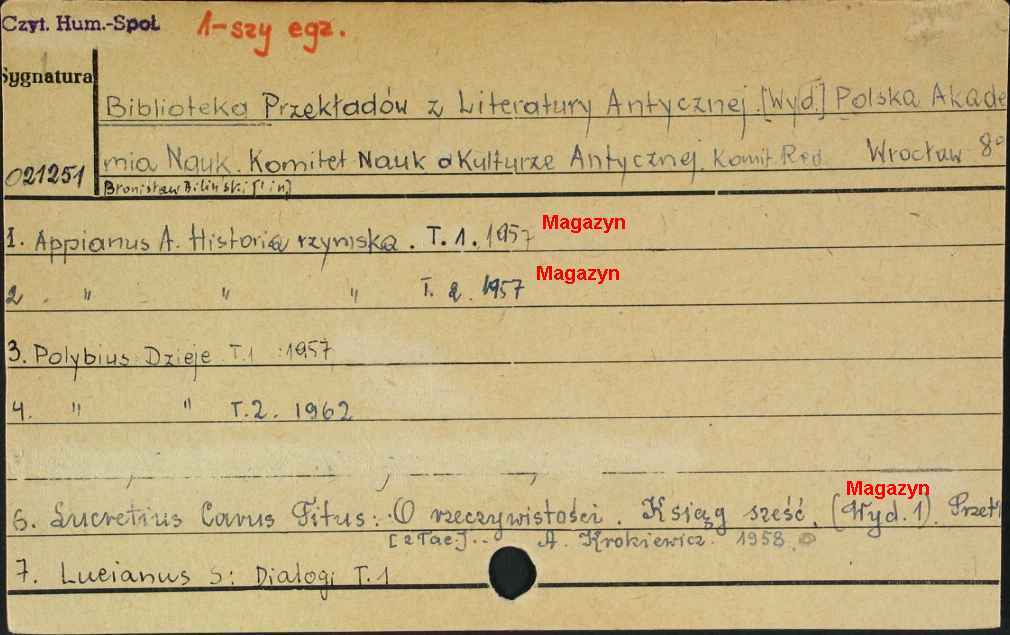 Czyt. Hum.-Społ. 1-szy egz.
Sygnatura
Biblioteka Przekładów z Literatury Antycznej. [Wyd.] Polska Akade
021251 mia Nauk. Komitet Nauk o Kulturze Antycznej. Komit. Red. Wrocław 8°
Bronisław Biliński [i in]
1. Appianus A. Historia rzymska. T. 1. 1957 Magazyn
2. " " " T. 2. 1957 Magazyn
3. Polybius: Dzieje T.1 1957
4. " " T.2. 1962
Magazyn
6. Lucretius Carus Titus: O rzeczywistości. Ksiąg sześć. (Wyd. 1). Przeł.
[z łac.].. A. Krokiewicz. 1958.
7. Lucianus S: Dialogi T.1